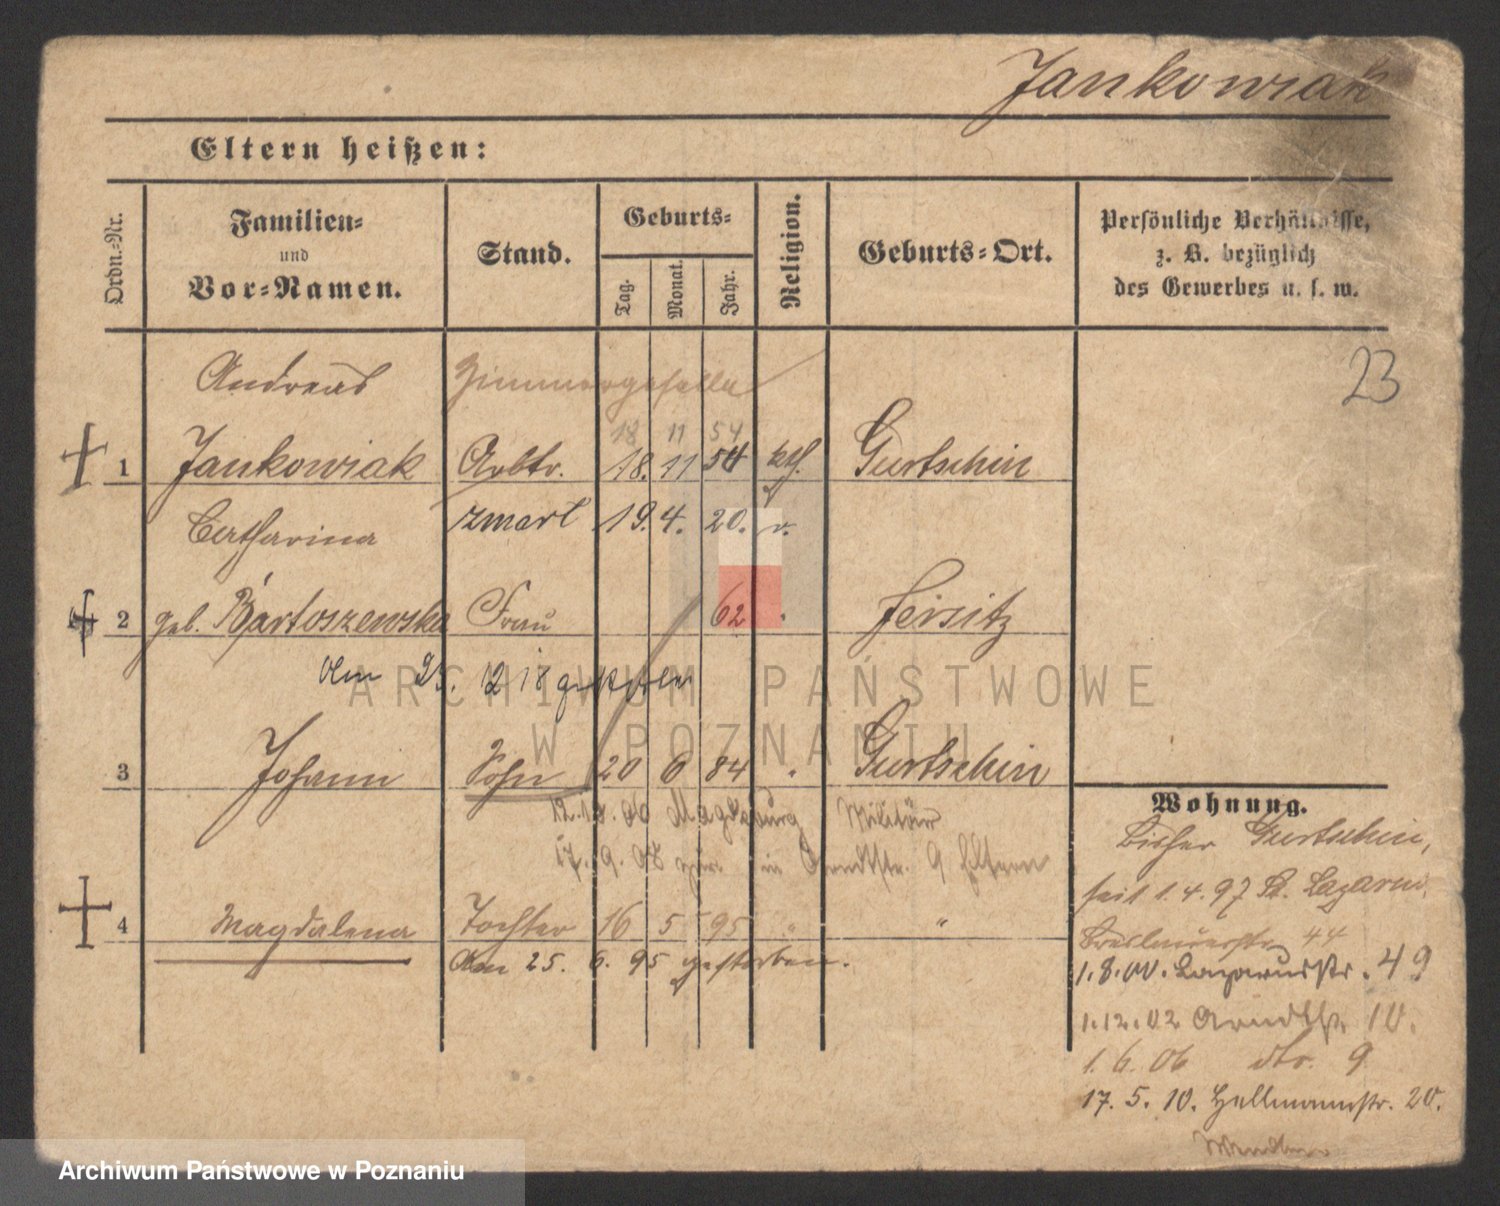 Jankowiak
Eltern heißen:
Ordn.-Nr.
Familien-
und
Vor-Namen.
Stand.
Geburts-
Tag.
Monat.
Jahr.
Religion.
Geburts-Ort.
Persönliche Verhältnisse,
z. B. bezüglich
des Gewerbes u. s. w.
23
Andreas Zimmergeselle
18 11 54
1 Jankowiak Arbtr. 18. 11 54 kth. Gurtschin
Catharina zmarł 19. 4. 20. r.
2 geb. Bartoszewska Frau 62 " Jersitz
Am 25. 12 18 gestorben
3 Johann Sohn 20 6 84 " Gurtschin
12.10.06 Magdeburg Militär
17. 9. 08 zur. in Arndtstr. 9 Eltern
4 Magdalena Tochter 16 5 95 " "
Am 25. 6. 95 gestorben.
Wohnung.
Bisher Gurtschin,
seit 1.4.97 St. Lazarus,
Breslauerstr. 44
1.8.00. Lazarusstr. 49
1.12.02 Arndtstr. 10.
1.6.06 dto. 9
17. 5. 10. Hellmannstr. 20.
ARCHIWUM PAŃSTWOWE
W POZNANIU
Archiwum Państwowe w Poznaniu